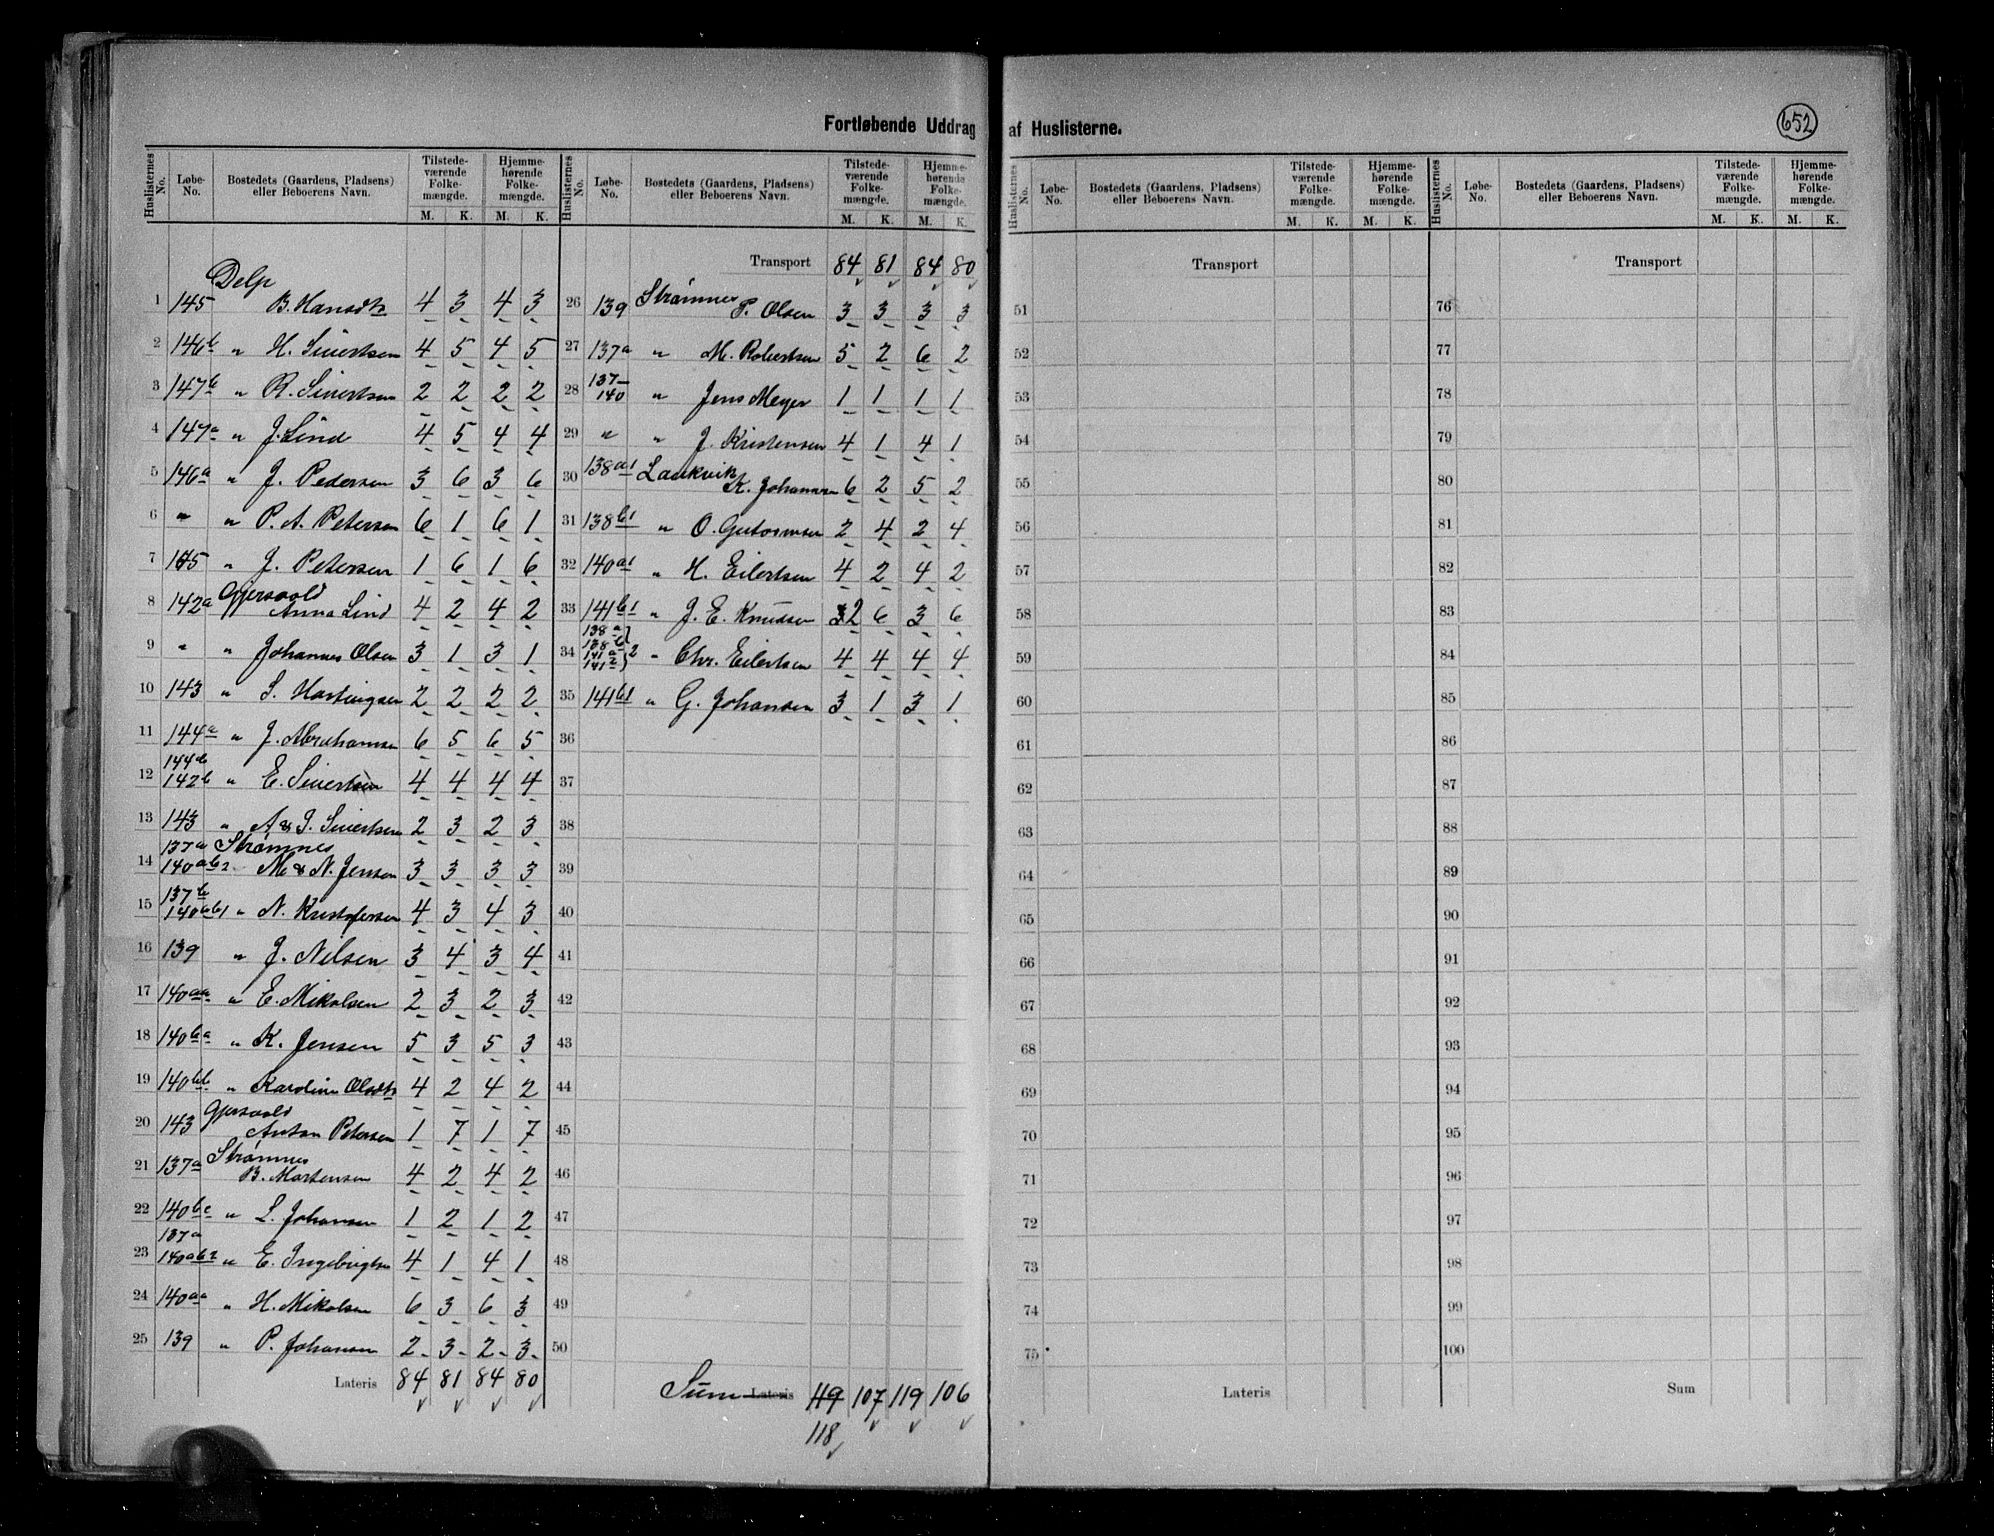 Fortløbende Uddrag af Huslisterne.
652
Huslisternes No. Løbe-No. Bostedets (Gaardens, Pladsens) eller Beboerens Navn. Tilstedeværende Folkemængde. M. K. Hjemmehørende Folkemængde. M. K.
Delp
1 145 B. Hansdtr 4 3 4 3
2 146b " H. Sivertsen 4 5 4 5
3 147b " R. Sivertsen 2 2 2 2
4 147a " J. Lind 4 5 4 4
5 146a " J. Pedersen 3 6 3 6
6 " " P. A. Petersen 6 1 6 1
7 145 " J. Petersen 1 6 1 6
8 142a Gjersvold Anna Lind 4 2 4 2
9 " " Johannes Olsen 3 1 3 1
10 143 " S. Hartvigsen 2 2 2 2
11 144a " J. Abrahamsen 6 5 6 5
144b
12 142b " E. Sivertsen 4 4 4 4
13 143 " A & J. Sivertsen 2 3 2 3
137a Strømnes
14 140ab2 M & N. Jensen 3 3 3 3
137b
15 140bb1 " N. Kristofersen 4 3 4 3
16 139 " J. Nilsen 3 4 3 4
17 140aa " E. Mikalsen 2 3 2 3
18 140ba " K. Jensen 5 3 5 3
19 140bb " Karoline Olsdtr 4 2 4 2
Gjersvold
20 143 Anton Petersen 1 7 1 7
Strømnes
21 137a B. Mortensen 4 2 4 2
22 140bc " L. Johansen 1 2 1 2
137a
23 140ab2 " E. Ingebrigtsen 4 1 4 1
24 140aa " H. Mikalsen 6 3 6 3
25 139 " P. Johansen 2 3 2 3
Lateris 84 81 84 80
Huslisternes No. Løbe-No. Bostedets (Gaardens, Pladsens) eller Beboerens Navn. Tilstedeværende Folkemængde. M. K. Hjemmehørende Folkemængde. M. K.
Transport 84 81 84 80
26 139 Strømnes P. Olsen 3 3 3 3
27 137a " M. Robertsen 5 2 6 2
137-
28 140 " Jens Meyer 1 1 1 1
29 " " J. Kristensen 4 1 4 1
30 138a1 Laukvik K. Johansen 6 2 5 2
31 138b1 " O. 2 4 2 4
32 140a1 " H. Eilertsen 4 2 4 2
33 141b1 " J. E. Knudsen 2 6 3 6
138a
138b
34 141a 2 " Chr. Eilertsen 4 4 4 4
141
35 141b1 " G. Johansen 3 1 3 1
36
37
38
39
40
41
42
43
44
45
46
47
48
49
50
Sum Lateris 119 107 119 106
118
Huslisternes No. Løbe-No. Bostedets (Gaardens, Pladsens) eller Beboerens Navn. Tilstedeværende Folkemængde. M. K. Hjemmehørende Folkemængde. M. K.
Transport
51
52
53
54
55
56
57
58
59
60
61
62
63
64
65
66
67
68
69
70
71
72
73
74
75
Lateris
Huslisternes No. Løbe-No. Bostedets (Gaardens, Pladsens) eller Beboerens Navn. Tilstedeværende Folkemængde. M. K. Hjemmehørende Folkemængde. M. K.
Transport
76
77
78
79
80
81
82
83
84
85
86
87
88
89
90
91
92
93
94
95
96
97
98
99
100
Sum